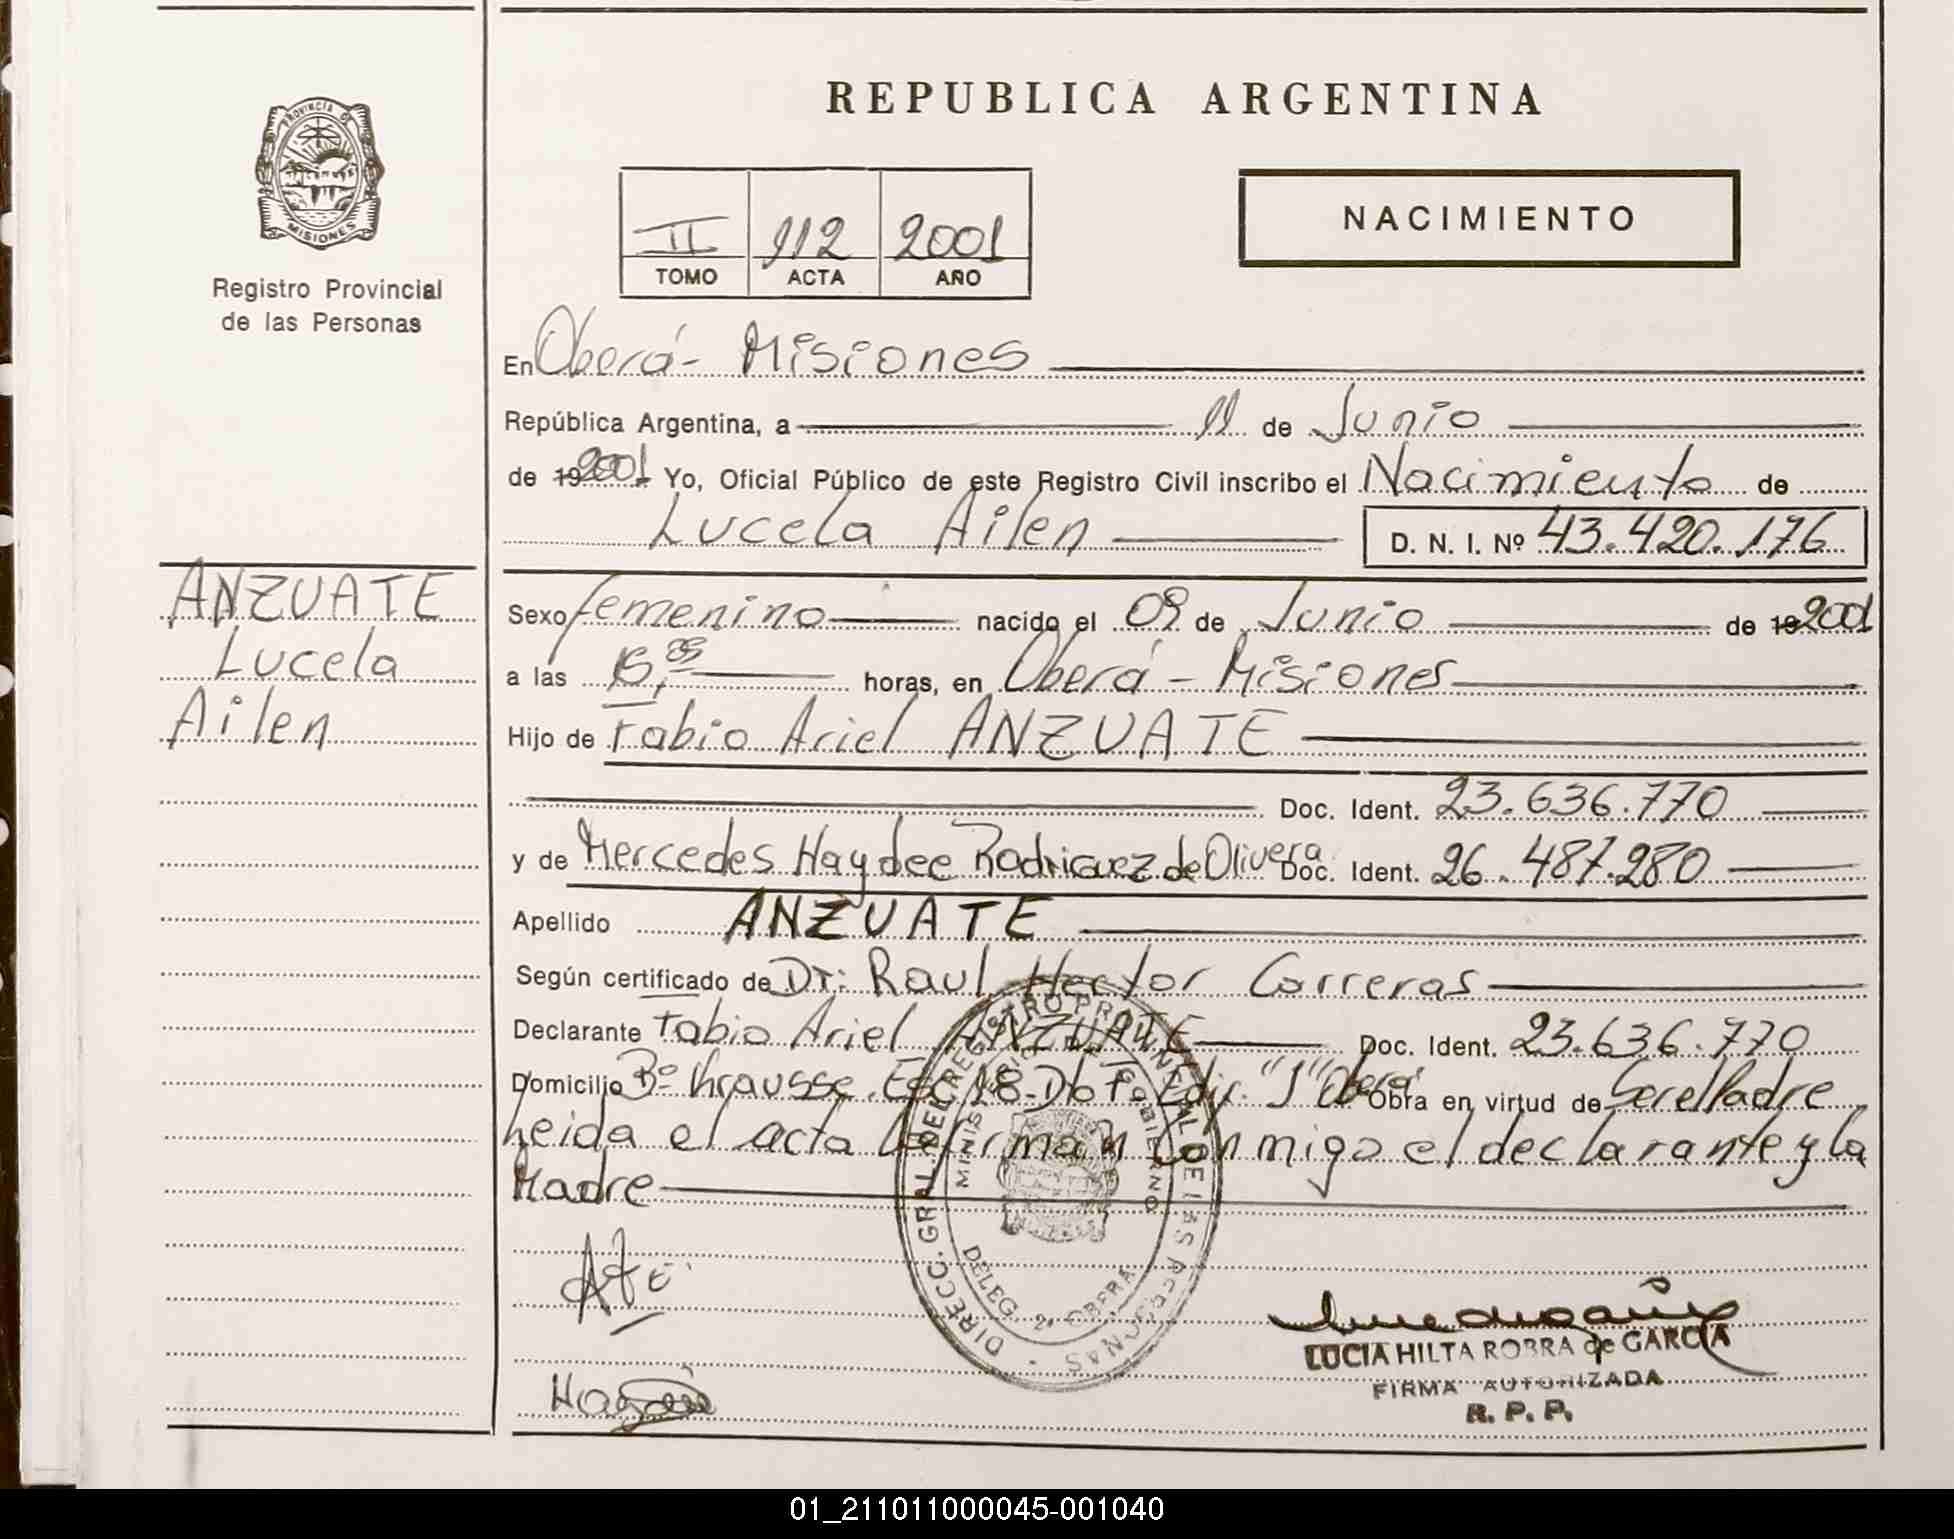 PROVINCIA DE
MISIONES
Registro Provincial
de las Personas
ANZUATE
Lucela
Ailen
REPUBLICA ARGENTINA
II 112 2001
TOMO ACTA AÑO
NACIMIENTO
En Oberá - Misiones
República Argentina, a 11 de Junio
de 19 2001 Yo, Oficial Público de este Registro Civil inscribo el Nacimiento de
Lucela Ailen D. N. I. Nº 43.420.176
Sexo femenino nacido el 09 de Junio de 19 2001
a las horas, en Oberá - Misiones
Hijo de Fabio Ariel ANZUATE
Doc. Ident. 23.636.770
y de Mercedes Haydee Rodriguez de Olivera Doc. Ident. 26.487.280
Apellido ANZUATE
Según certificado de Dr: Raul Hector Carreras
Declarante Fabio Ariel ANZUATE Doc. Ident. 23.636.770
Domicilio Bº Krausse. Esc 18-Dto F. Edif. "J" Oberá Obra en virtud de Ser el Padre
Leida el acta la firman conmigo el declarante y la
Madre
DIRECC. GRAL. DEL REGISTRO PROVINCIAL DE LAS PERSONAS
MINISTERIO DE GOBIERNO
DELEG. 2ª OBERA
LUCIA HILTA ROBRA de GARCIA
FIRMA AUTORIZADA
R. P. P.
01_211011000045-001040